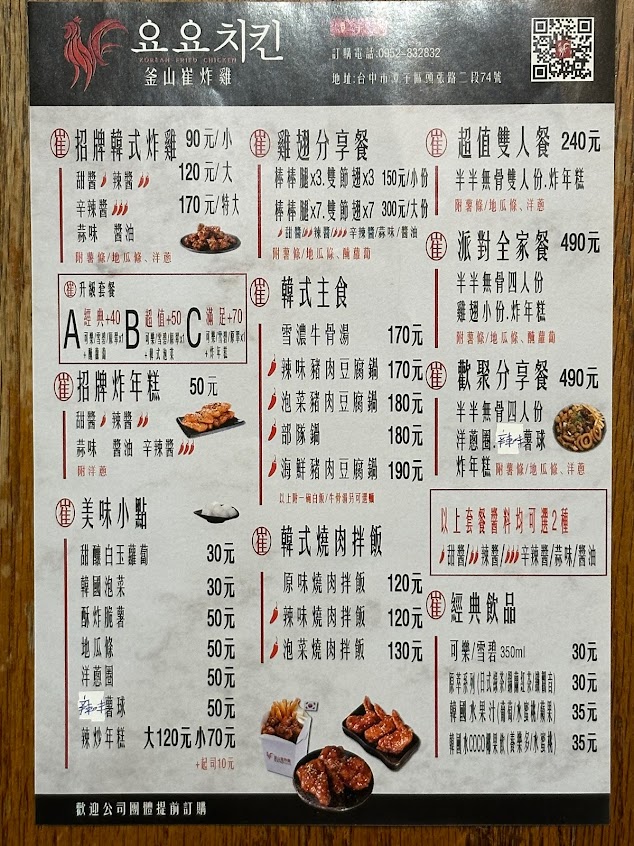 요요치킨
KOREAN FRIED CHICKEN
釜山崔炸雞
訂購電話:0952-832832
地址:台中市潭子區頭張路二段74號
崔 招牌韓式炸雞 90元/小
甜醬 辣醬 120元/大
辛辣醬 170元/特大
蒜味 醬油
附薯條/地瓜條、洋蔥
崔 升級套餐
A 經典+40
可樂/雪碧/原萃x1
+醃蘿蔔
B 超值+50
可樂/雪碧/原萃x1
+韓式泡菜
C 滿足+70
可樂/雪碧/原萃x1
+炸年糕
崔 招牌炸年糕 50元
甜醬 辣醬
蒜味 醬油 辛辣醬
附洋蔥
崔 美味小點
甜釀白玉蘿蔔 30元
韓國泡菜 30元
酥炸脆薯 50元
地瓜條 50元
洋蔥圈 50元
辣味薯球 50元
辣炒年糕 大120元 小70元
+起司10元
崔 雞翅分享餐
棒棒腿x3.雙節翅x3 150元/小份
棒棒腿x7.雙節翅x7 300元/大份
甜醬/辣醬/辛辣醬/蒜味/醬油
附薯條/地瓜條、醃蘿蔔
崔 韓式主食
雪濃牛骨湯 170元
辣味豬肉豆腐鍋 170元
泡菜豬肉豆腐鍋 180元
部隊鍋 180元
海鮮豬肉豆腐鍋 190元
以上附一碗白飯/牛骨湯另可選麵
崔 韓式燒肉拌飯
原味燒肉拌飯 120元
辣味燒肉拌飯 120元
泡菜燒肉拌飯 130元
崔 超值雙人餐 240元
半半無骨雙人份.炸年糕
附薯條/地瓜條、洋蔥
崔 派對全家餐 490元
半半無骨四人份
雞翅小份.炸年糕
附薯條/地瓜條、醃蘿蔔
崔 歡聚分享餐 490元
半半無骨四人份
洋蔥圈.辣味薯球
炸年糕 附薯條/地瓜條、洋蔥
以上套餐醬料均可選2種
甜醬/辣醬/辛辣醬/蒜味/醬油
崔 經典飲品
可樂/雪碧 350ml 30元
原萃系列(日式綠茶/錫蘭紅茶/鐵觀音) 30元
韓國水果汁(葡萄/水蜜桃/蘋果) 35元
韓國水COCO椰果飲(養樂多/水蜜桃) 35元
歡迎公司團體提前訂購